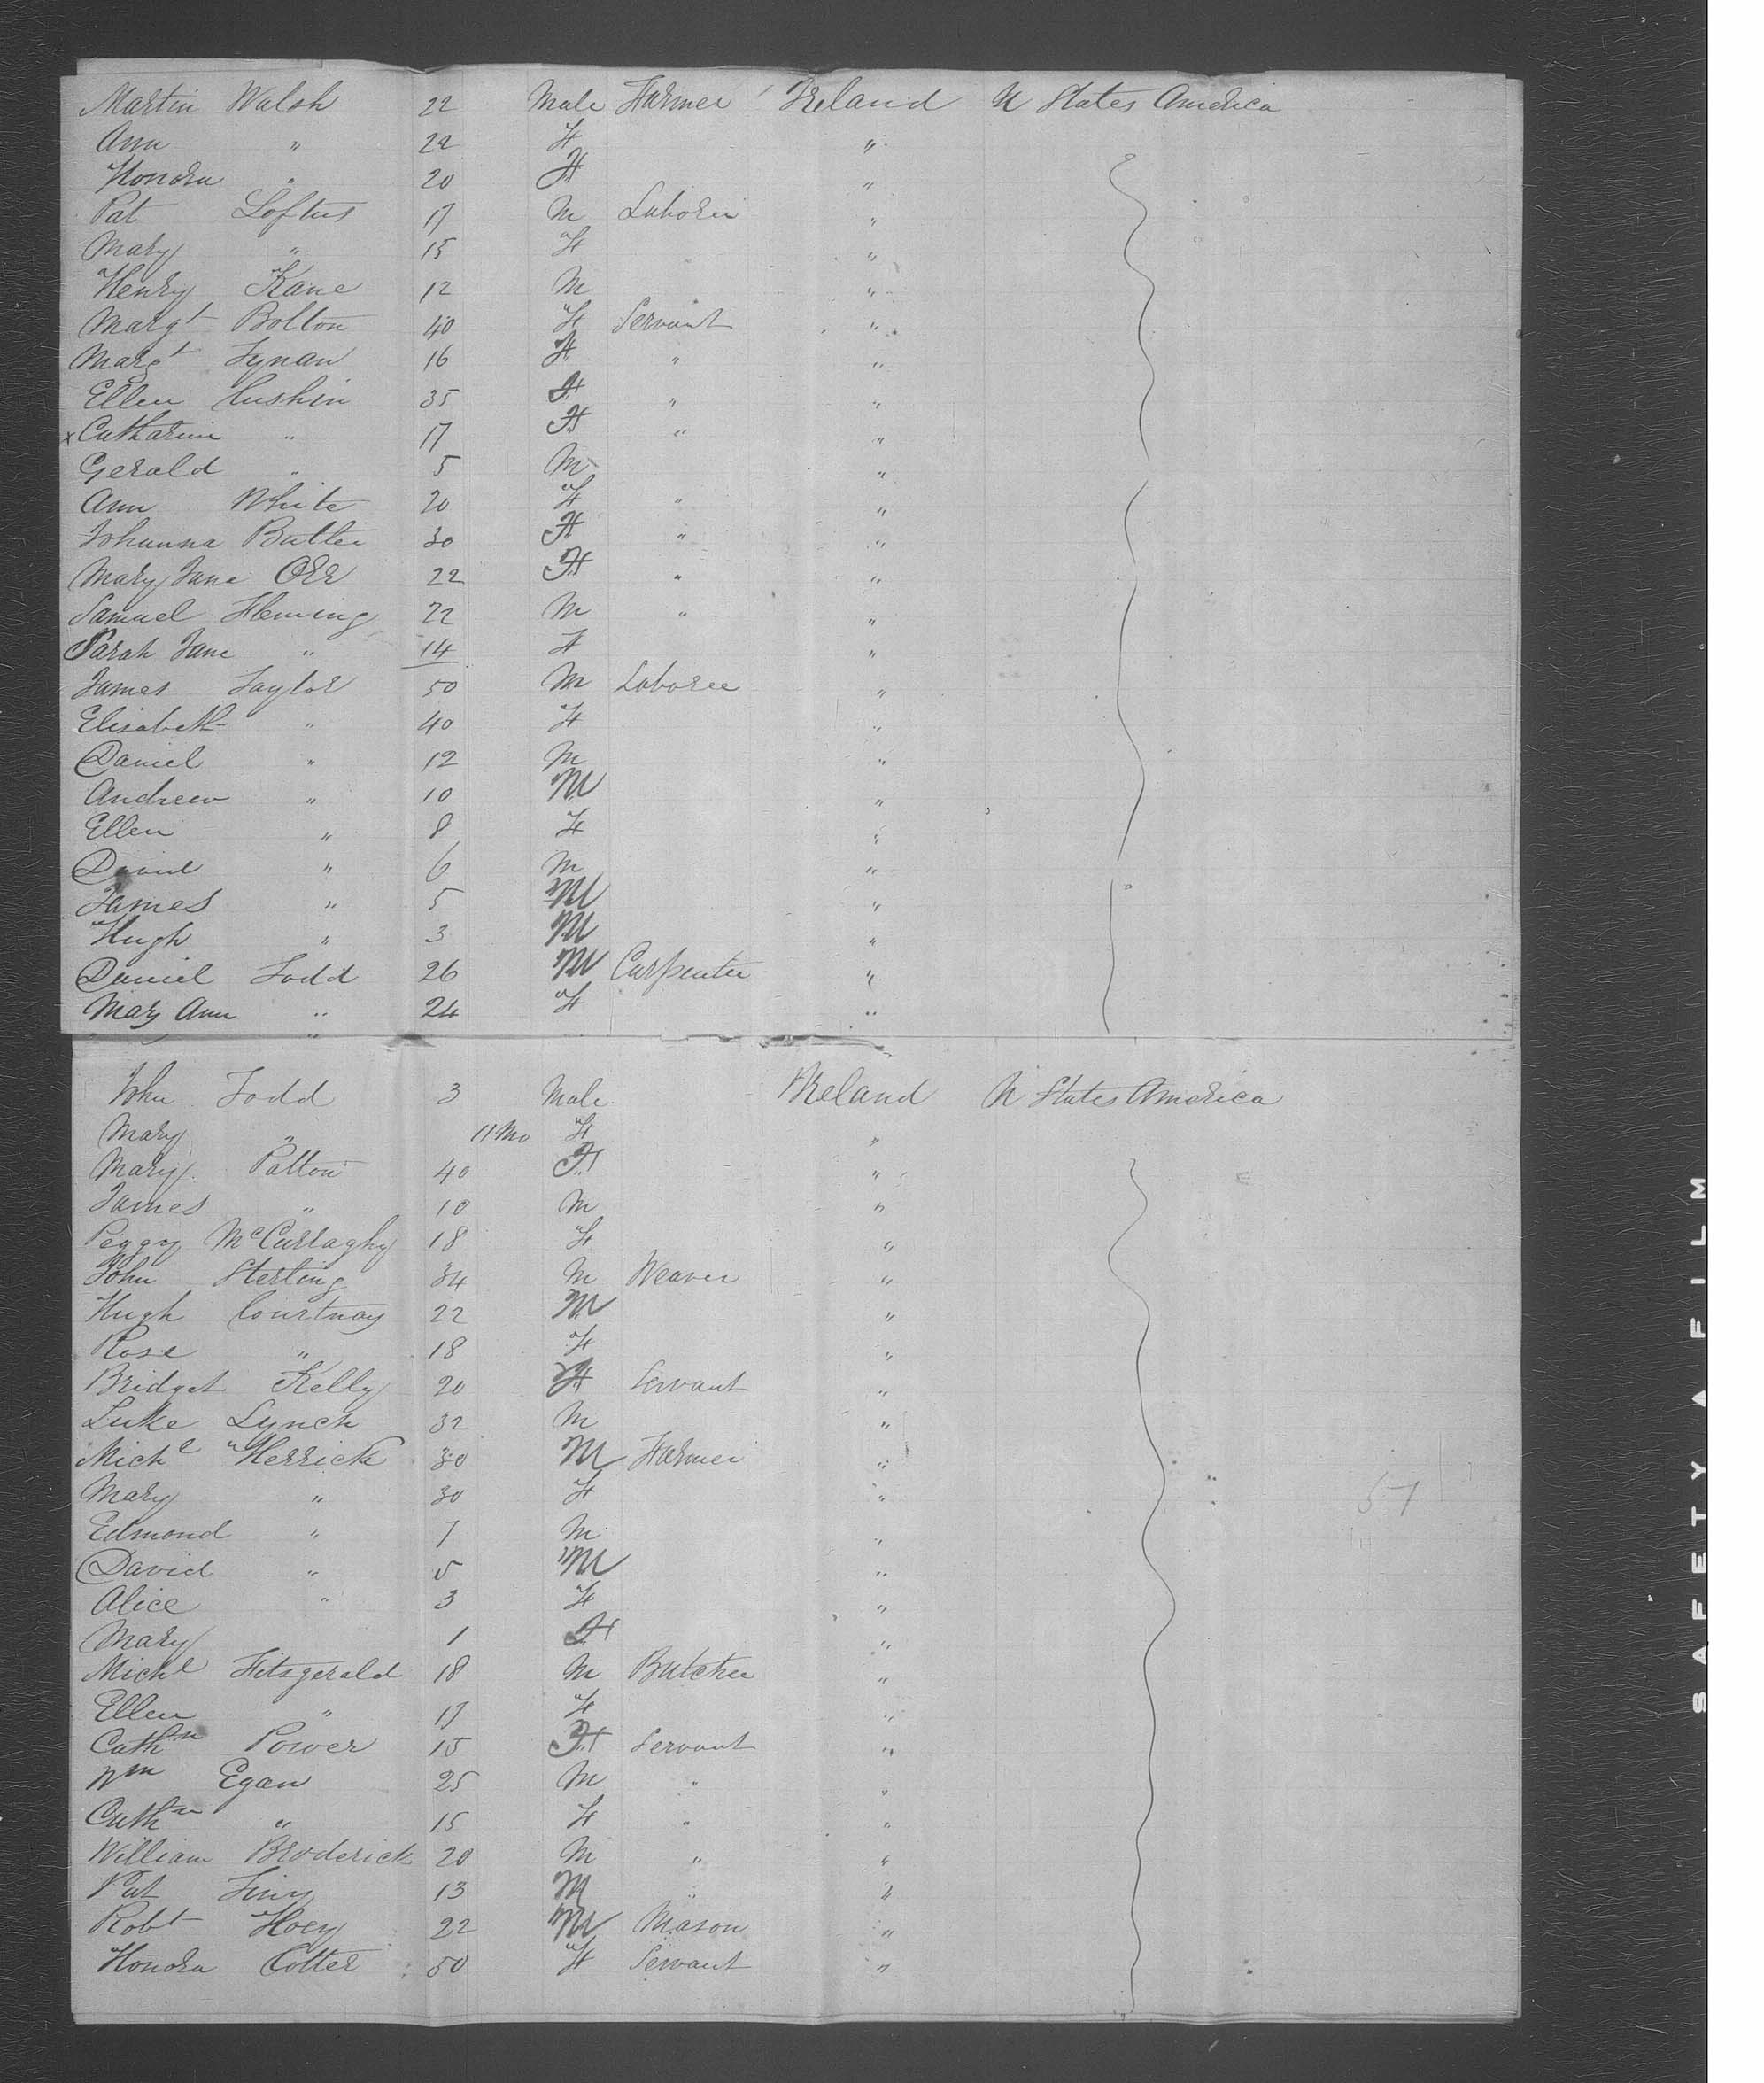 Martin Walsh 22 Male Farmer Ireland U States America
Ann " 22 F "
Honora " 20 F "
Pat Loftus 17 M Laborer "
Mary " 15 F "
Henry Kane 12 M "
Margt Bolton 40 F Servant "
Margt Tynan 16 F " "
Ellen Cushin 35 F " "
x Catharine " 17 F " "
Gerald " 5 M "
Ann White 20 F " "
Johanna Butler 30 F " "
Mary Jane Orr 22 F " "
Samuel Fleming 22 M " "
Sarah Jane " 14 F "
James Taylor 50 M Laborer "
Elisabeth " 40 F "
Daniel " 12 M "
Andrew " 10 M "
Ellen " 8 F "
David " 6 M "
James " 5 M "
Hugh " 3 M "
Daniel Todd 26 M Carpenter "
Mary Ann " 24 F "
John Todd 3 Male Ireland U States America
Mary " 11 Mo F "
Mary Patton 40 F "
James " 10 M "
Peggy McCurraghy 18 F "
John Sterling 34 M Weaver "
Hugh Courtnay 22 M "
Rose " 18 F "
Bridget Kelly 20 F Servant "
Luke Lynch 32 M "
Michl Herrick 30 M Farmer "
Mary " 30 F "
Edmond " 7 M "
David " 5 M "
Alice " 3 F "
Mary 1 F "
Michl Fitsgerald 18 M Butcher "
Ellen " 17 F "
Cathn Power 15 F Servant "
Wm Egan 25 M " "
Cathn " 15 F " "
William Broderick 20 M " "
Pat 13 M " "
Robt Hoey 22 M Mason "
Honora Cotter 50 F Servant "
57
SAFETY A FILM